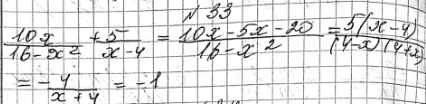 N 33
10x/(16-x²) + 5/(x-4) = (10x-5x-20)/(16-x²) = 5(x-4)/((4-x)(4+x))
= -4/(x+4) = -1